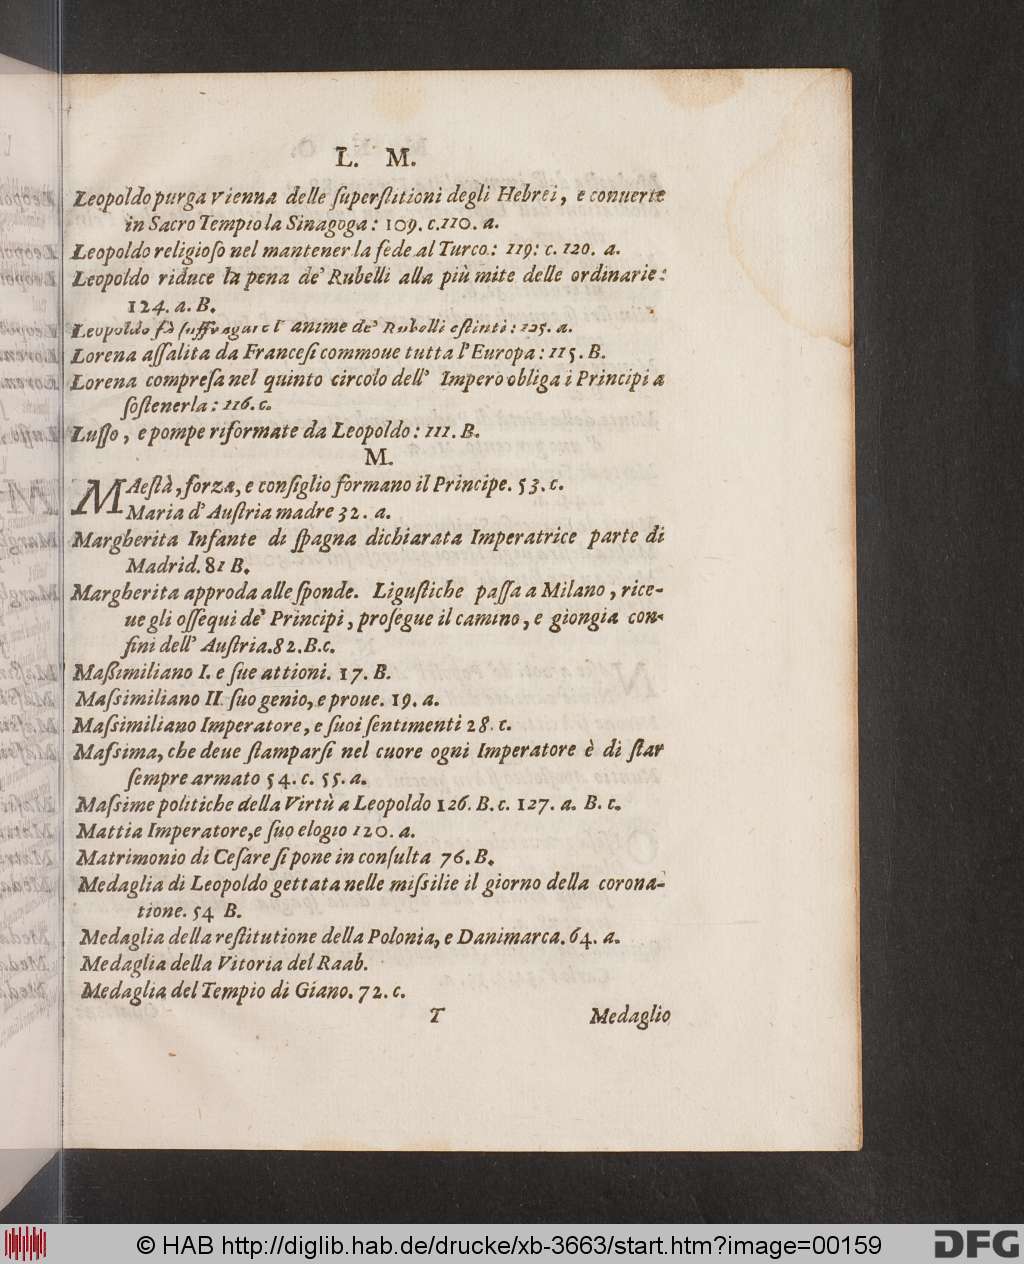 L. M.
Leopoldo purga vienna delle ſuperſtitioni degli Hebrei, e conuerte
in Sacro Tempio la Sinagoga: 109. c. 110. a.
Leopoldo religioſo nel mantener la fede al Turco: 119: c. 120. a.
Leopoldo riduce la pena de' Rubelli alla più mite delle ordinarie:
124. a. B.
Leopoldo fà ſuffragare l' anime de' Rubelli eſtinti: 125. a.
Lorena aſſalita da Franceſi commoue tutta l'Europa: 115. B.
Lorena compreſa nel quinto circolo dell' Impero obliga i Principi a
ſoſtenerla: 116. c.
Luſſo, e pompe riformate da Leopoldo: 111. B.
M.
MAeſtà, forza, e conſiglio formano il Principe. 53. c.
Maria d' Auſtria madre 32. a.
Margherita Infante di ſpagna dichiarata Imperatrice parte di
Madrid. 81 B.
Margherita approda alle ſponde. Liguſtiche paſſa a Milano, rice-
ue gli oſſequi de' Principi, proſegue il camino, e giongia con-
fini dell' Auſtria. 82. B. c.
Maßimiliano I. e ſue attioni. 17. B.
Maſsimiliano II. ſuo genio, e proue. 19. a.
Maſsimiliano Imperatore, e ſuoi ſentimenti 28. c.
Maſsima, che deue ſtamparſi nel cuore ogni Imperatore è di ſtar
ſempre armato 54. c. 55. a.
Maſsime politiche della Virtù a Leopoldo 126. B. c. 127. a. B. c.
Mattia Imperatore, e ſuo elogio 120. a.
Matrimonio di Ceſare ſi pone in conſulta 76. B.
Medaglia di Leopoldo gettata nelle miſsilie il giorno della corona-
tione. 54 B.
Medaglia della reſtitutione della Polonia, e Danimarca. 64. a.
Medaglia della Vitoria del Raab.
Medaglia del Tempio di Giano. 72. c.
T Medaglio
© HAB http://diglib.hab.de/drucke/xb-3663/start.htm?image=00159
DFG